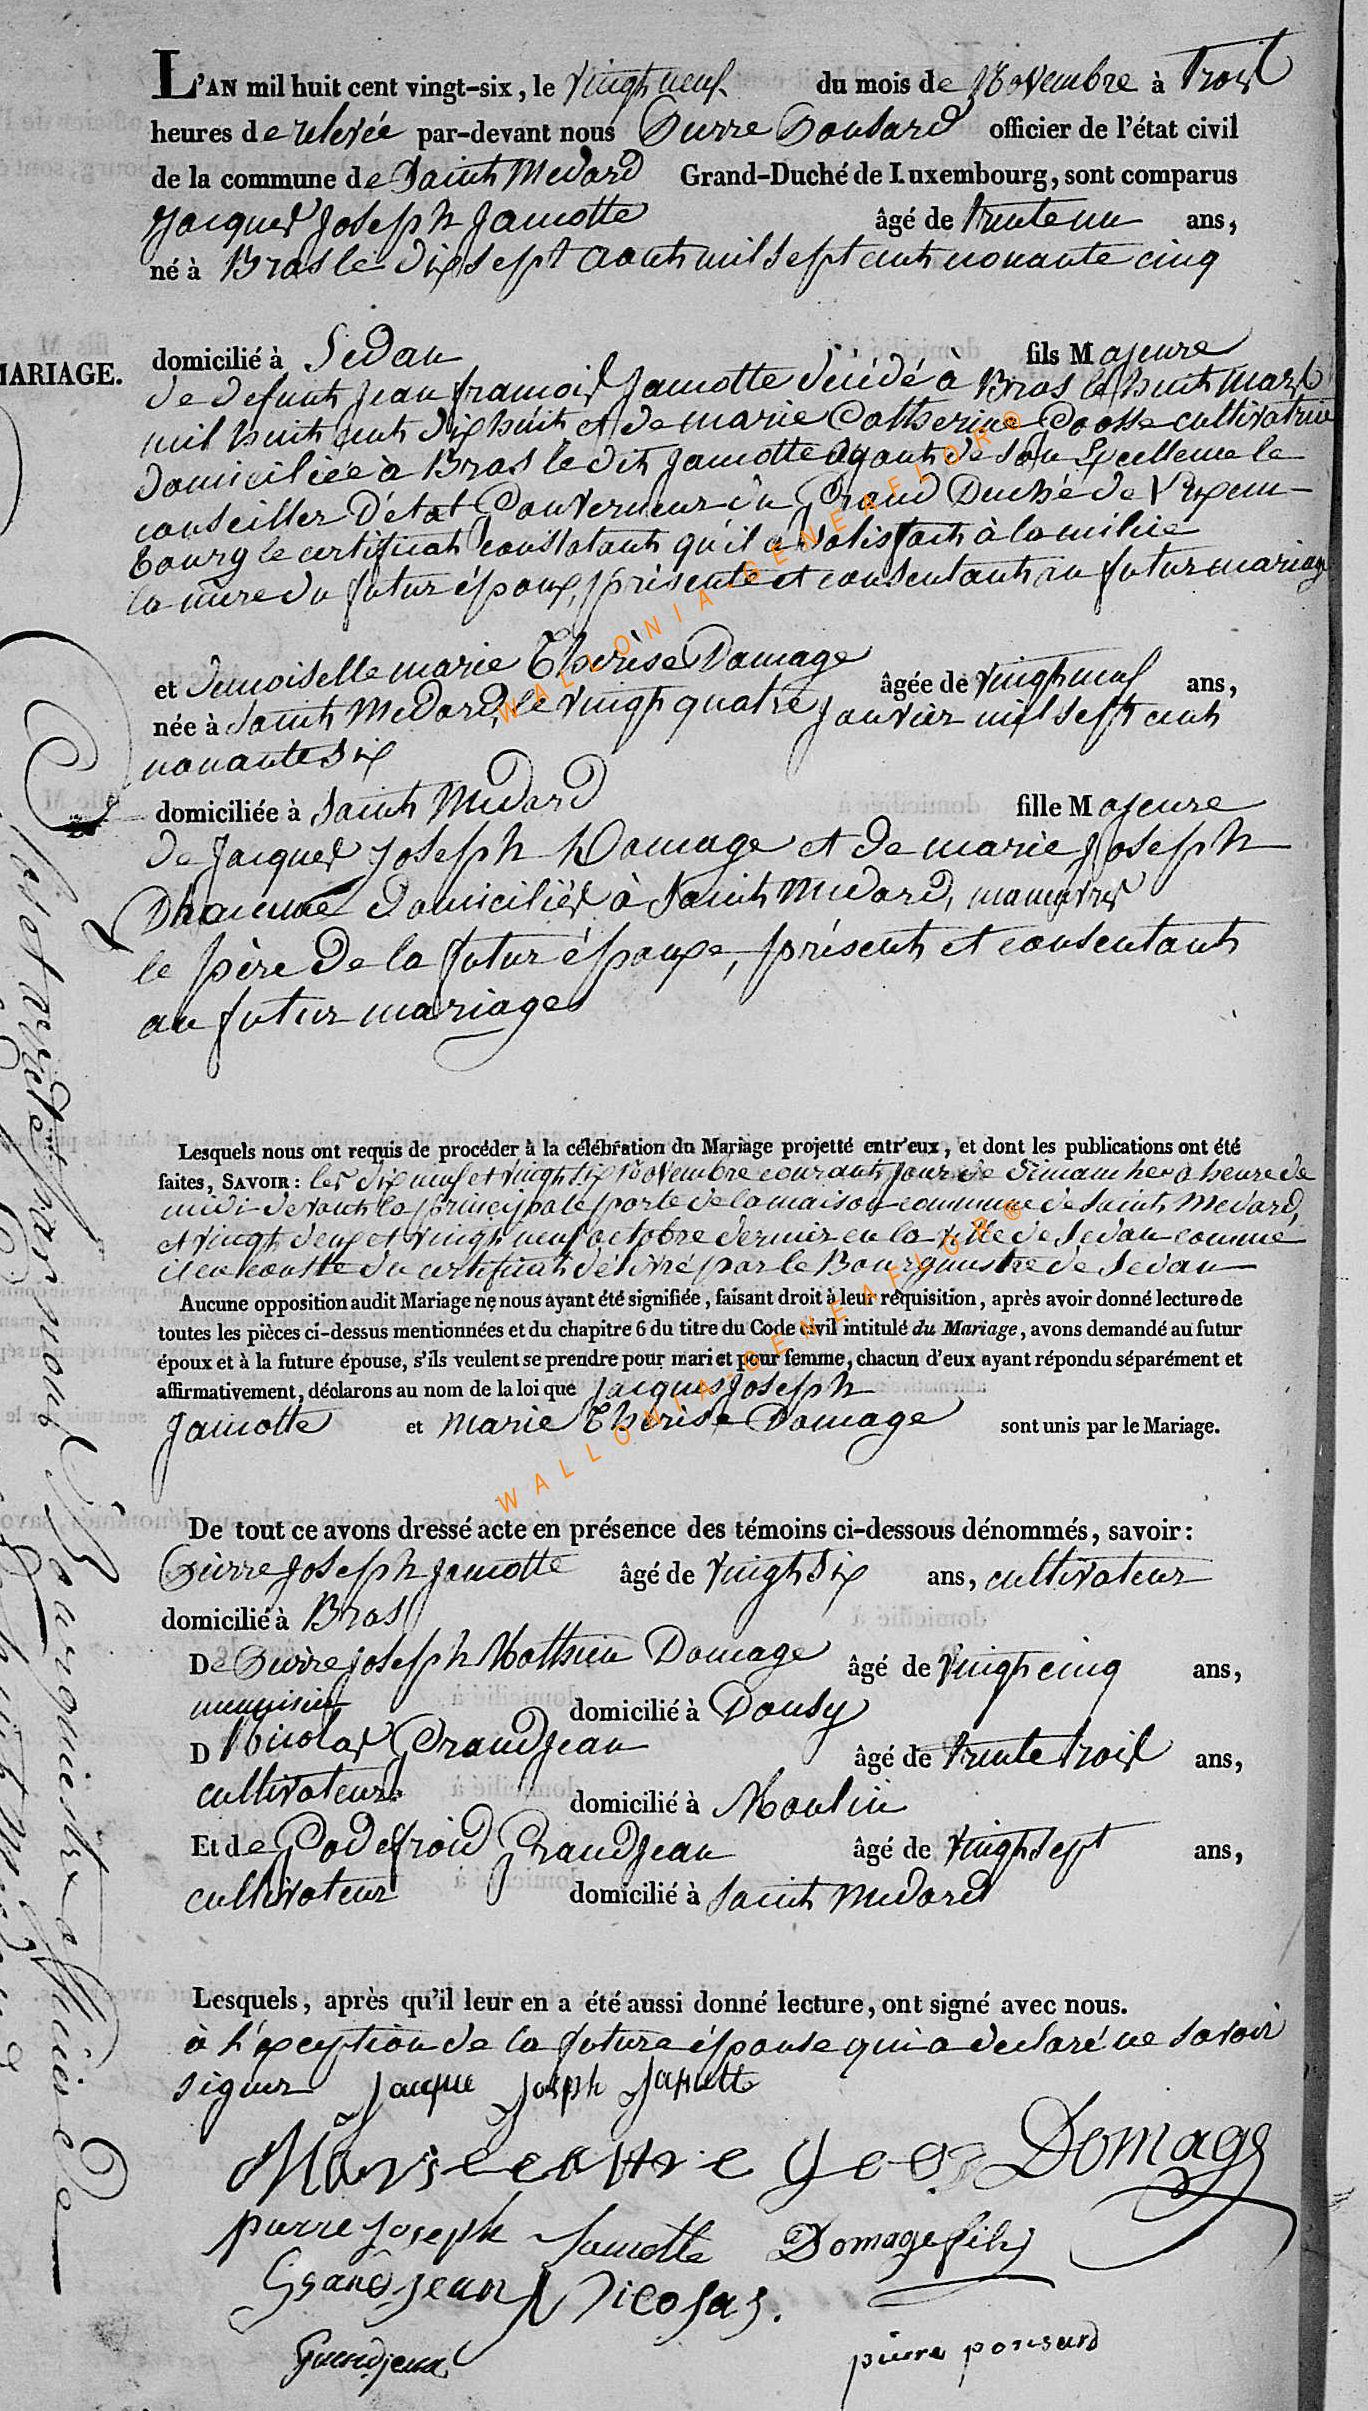 L'AN mil huit cent vingt-six, le vingt neuf du mois de Novembre à trois
heures de relevée par-devant nous Pierre Ponsard officier de l'état civil
de la commune de Saint Medard Grand-Duché de Luxembourg, sont comparus
Jacques Joseph Jamotte âgé de trente un ans,
né à Bras le dix sept aout mil sept cent nonante cinq
MARIAGE.
domicilié à Sedan fils Majeure
de defunt Jean francois Jamotte décédé à Bras le huit mars
mil huit cent dix huit et de marie Catherine Goosse cultivatrice
domiciliée à Bras le dit Jamotte ayant de Son Excellence le
conseiller D'état Gouverneur du Grand Duché de Luxem-
bourg le certificat constatant qu'il a satisfait à la milice
la mère du futur époux, présente et consentant au futur mariage
et demoiselle marie Therèse Domage âgée de vingt neuf ans,
née à Saint Medard, le vingt quatre Janvier mil sept cent
nonante six
domiciliée à Saint Medard fille Majeure
de Jacques Joseph Domage et de marie Joseph
domiciliés à Saint Medard,
le père de la futur épouxe, présent et consentant
au futur mariage
Lesquels nous ont requis de procéder à la célébration du Mariage projetté entr'eux, et dont les publications ont été
faites, SAVOIR: les dix neuf et vingt six Novembre courant jour de dimanche a heure de
midi devant la principale porte de la maison commune de Saint Medard,
et vingt deux et vingt neuf octobre dernier en la ville de Sedan comme
il en conste du certificat délivré par le Bourgmestre de Sedan
Aucune opposition audit Mariage ne nous ayant été signifiée, faisant droit à leur réquisition, après avoir donné lecture de
toutes les pièces ci-dessus mentionnées et du chapitre 6 du titre du Code civil intitulé du Mariage, avons demandé au futur
époux et à la future épouse, s'ils veulent se prendre pour mari et pour femme, chacun d'eux ayant répondu séparément et
affirmativement, déclarons au nom de la loi que Jacques Joseph
Jamotte et Marie Therèse Domage sont unis par le Mariage.
De tout ce avons dressé acte en présence des témoins ci-dessous dénommés, savoir:
Pierre Joseph Jamotte âgé de vingt six ans, cultivateur
domicilié à Bras
De Pierre Joseph Mathieu Domage âgé de vingt cinq ans,
menuisier domicilié à Dousy
D Nicolas Grandjean âgé de trente trois ans,
cultivateur domicilié à Moulin
Et de Godefroid Grandjean âgé de vingt sept ans,
cultivateur domicilié à Saint Medard
Lesquels, après qu'il leur en a été aussi donné lecture, ont signé avec nous.
à l'exception de la future épouse qui a declaré ne savoir
signer Jacque Joseph Jamotte
Domage
pierre Joseph Jamotte Domage fils
Grandjean Nicolas.
Grandjean
pierre ponsard
WALLONIA-GENEAFLOR®
WALLONIA-GENEAFLOR®